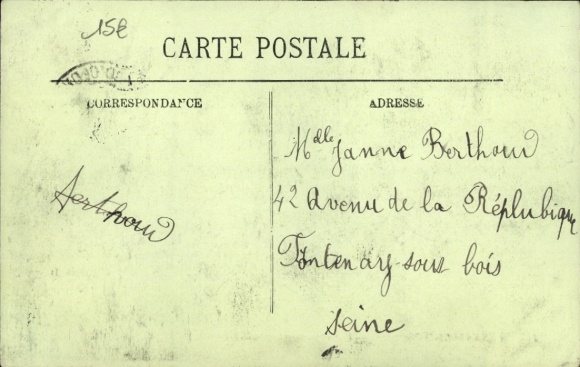 15€
CARTE POSTALE
CORRESPONDANCE
ADRESSE
Mdlle Janne Berthoud
42 Avenu de la Réplubique
Fontenay-sous bois
Seine
Berthoud